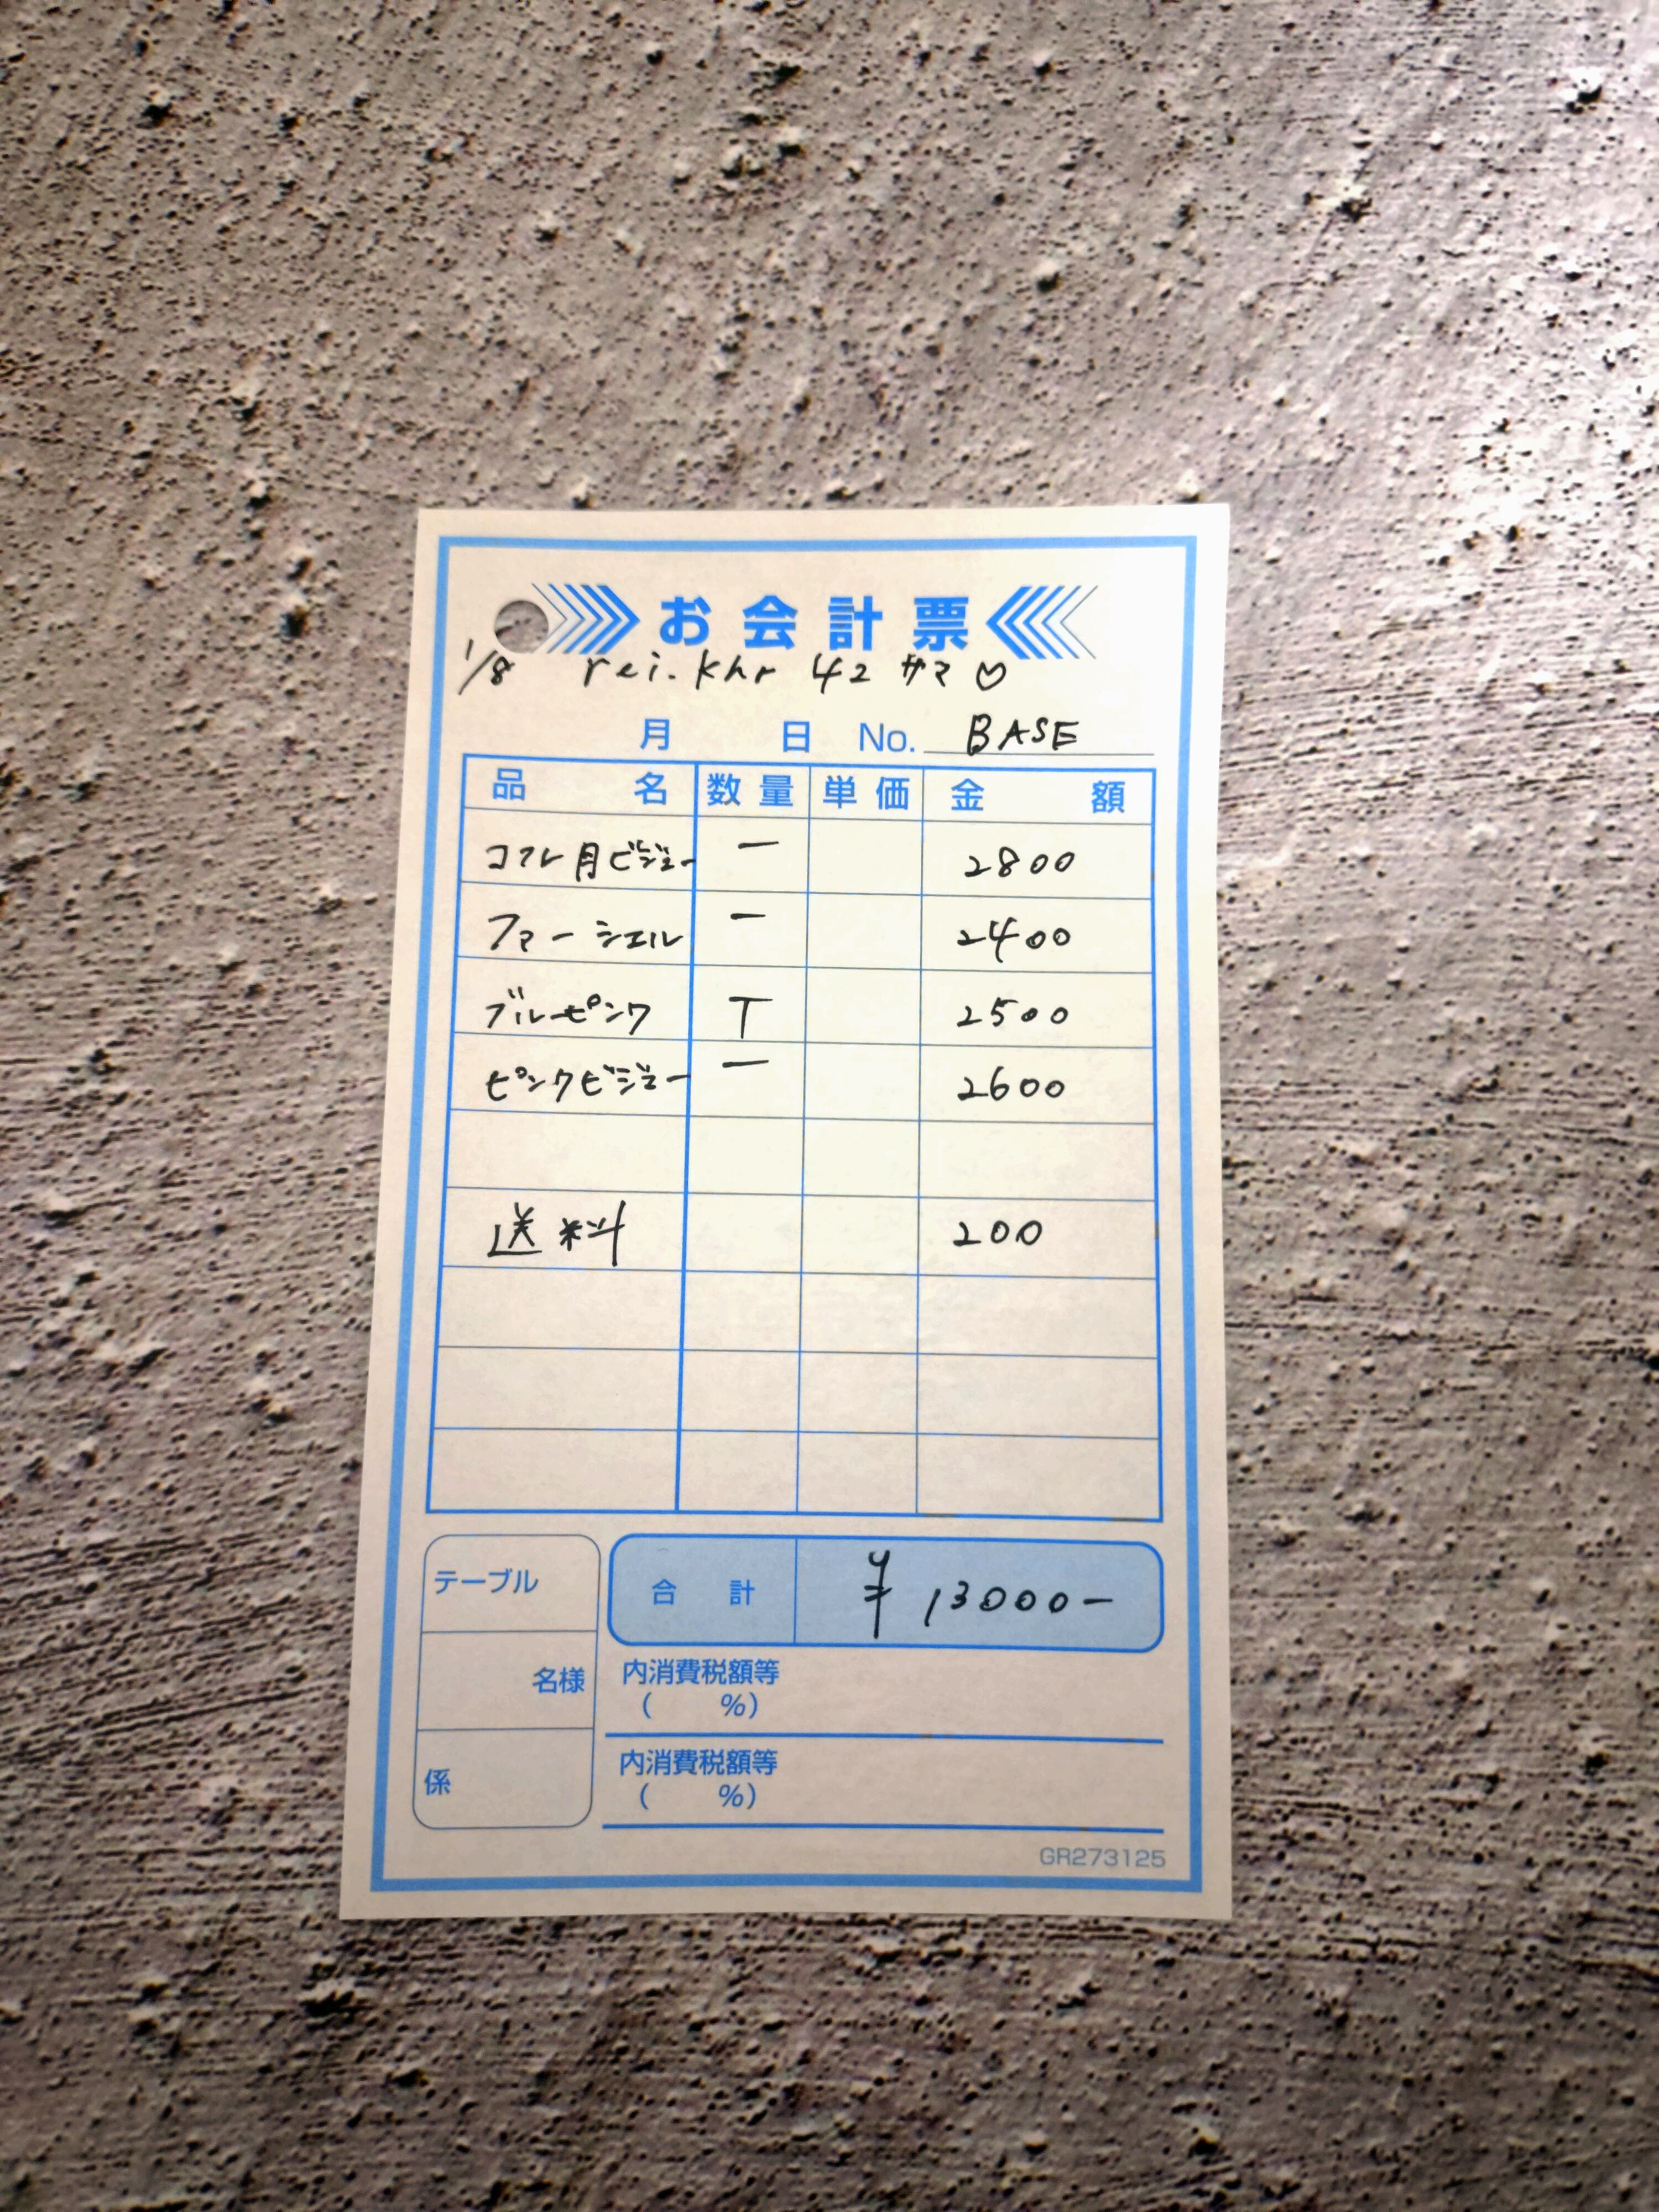 お会計票
1/8 rei.khr 42 サマ♡
月 日 No. BASE
品名 数量 単価 金額
コフレ月ビジュー 一 2800
ファーシェル 一 2400
ブルーピンク T 2500
ピンクビジュー 一 2600
送料 200
合計 ¥13000-
テーブル
名様
係
内消費税額等
( %)
内消費税額等
( %)
GR273125